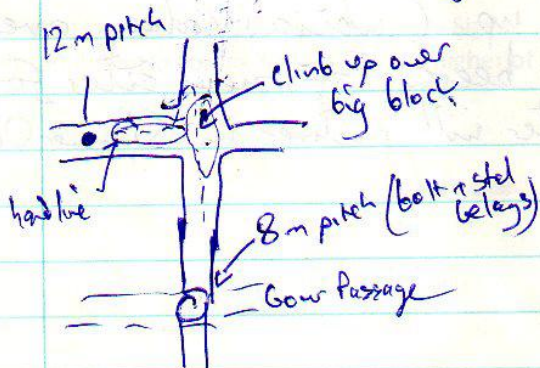 12 m pitch
climb up over
big block
handline
8 m pitch (bolt + stal
belays)
Gour Passage